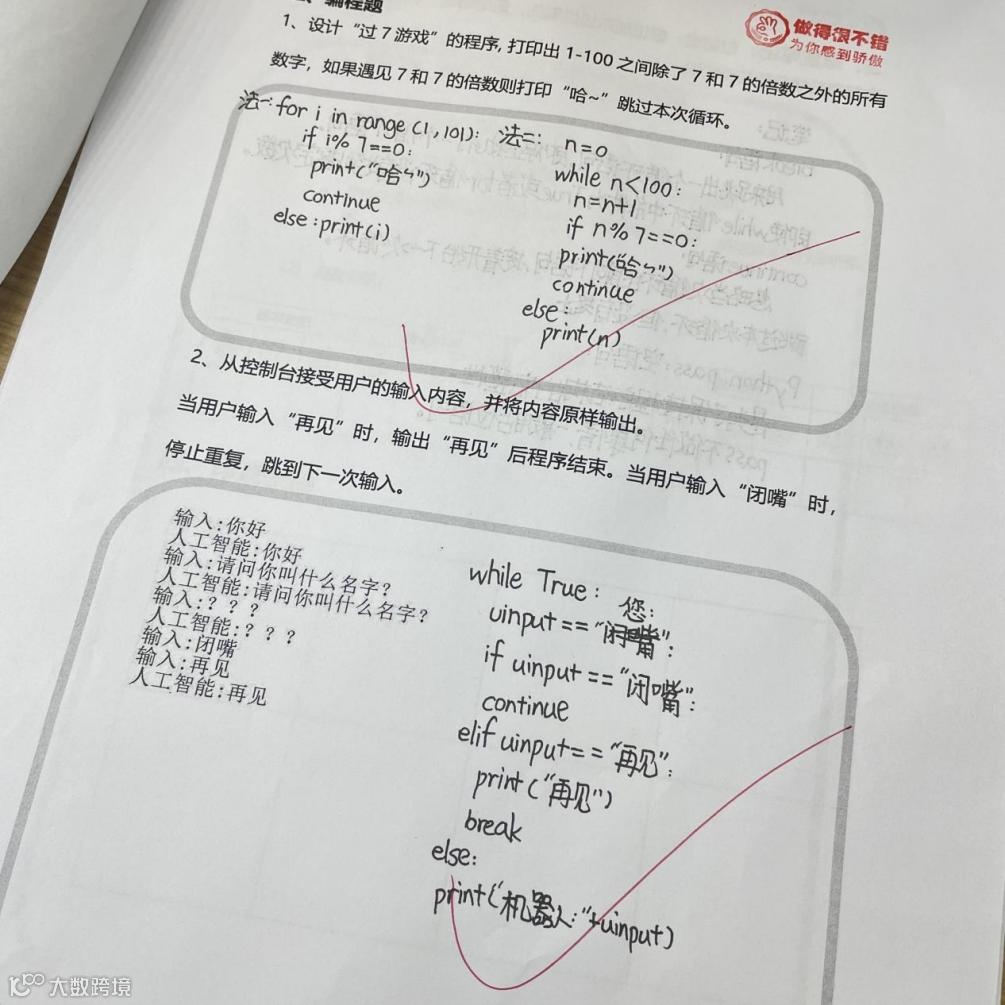 编程题
做得很不错
为你感到骄傲
1、设计“过7游戏”的程序, 打印出 1-100 之间除了 7 和 7 的倍数之外的所有
数字，如果遇见 7 和 7 的倍数则打印“哈~”跳过本次循环。
法一: for i in range (1, 101):
if i% 7==0:
print("哈~")
continue
else: print(i)
法二: n=0
while n<100:
n=n+1
if n%7==0:
print("哈~")
continue
else:
print(n)
2、从控制台接受用户的输入内容，并将内容原样输出。
当用户输入“再见”时，输出“再见”后程序结束。当用户输入“闭嘴”时，
停止重复，跳到下一次输入。
输入:你好
人工智能:你好
输入:请问你叫什么名字?
人工智能:请问你叫什么名字?
输入:? ? ?
人工智能:? ? ?
输入:闭嘴
输入:再见
人工智能:再见
while True:
您:
uinput=="闭嘴":
if uinput=="闭嘴":
continue
elif uinput=="再见":
print("再见")
break
else:
print("机器人:"+uinput)
大数跨境